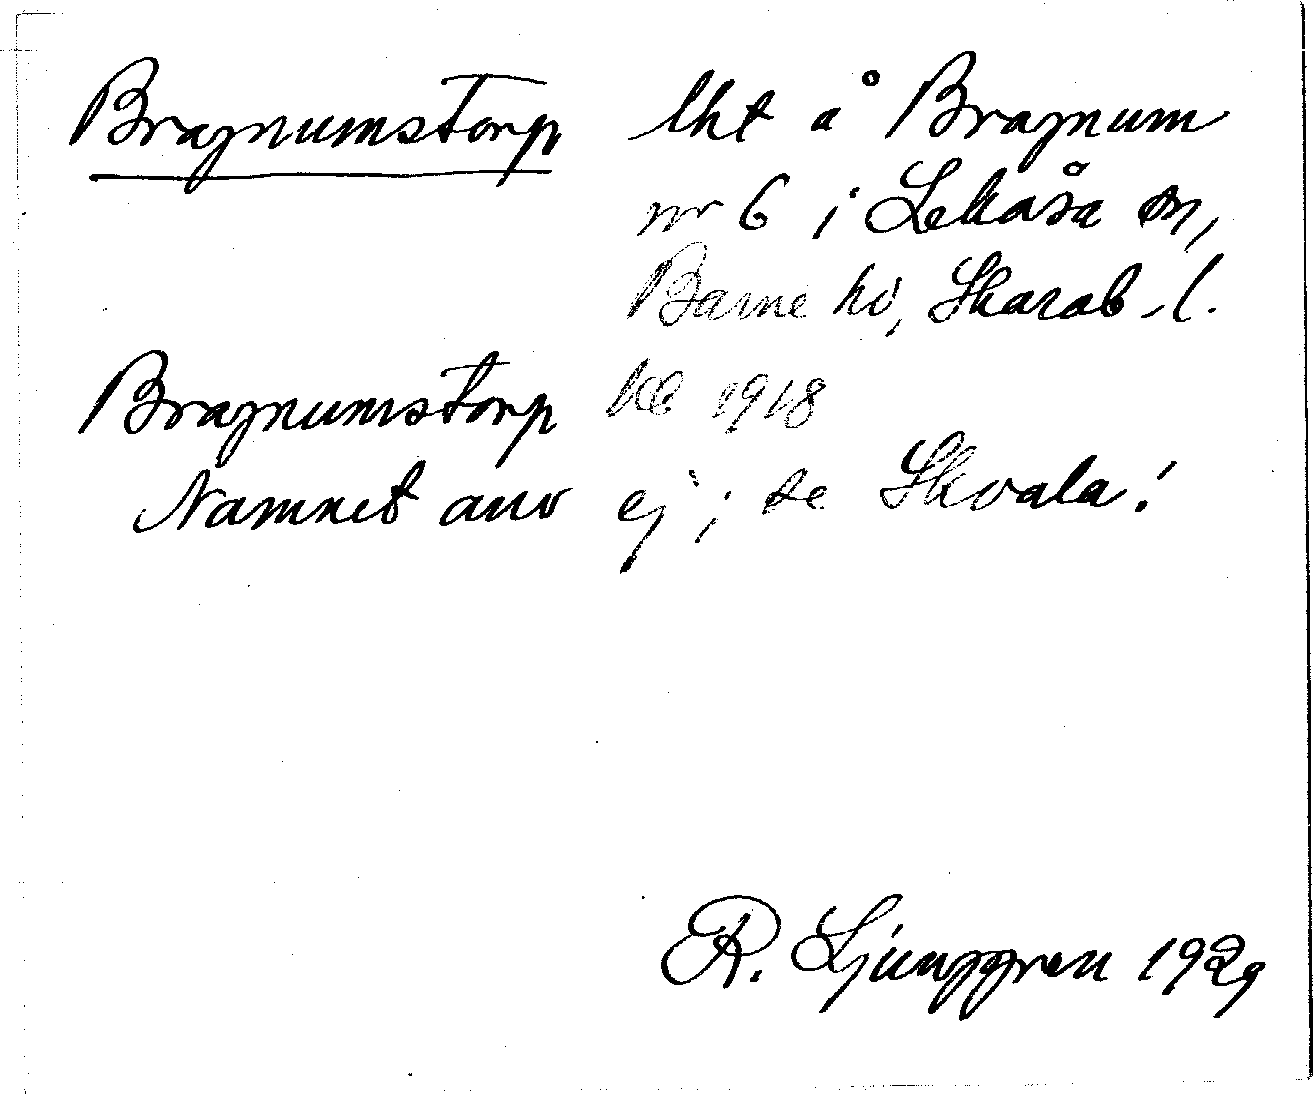 Bragnumstorp lht å Bragnum
nr 6 i Lekåsa sn,
Barne hd, Skarab. l.
Bragnumstorp kb 1918
Namnet anv ej; se Skvala!
R. Ljunggren 1929